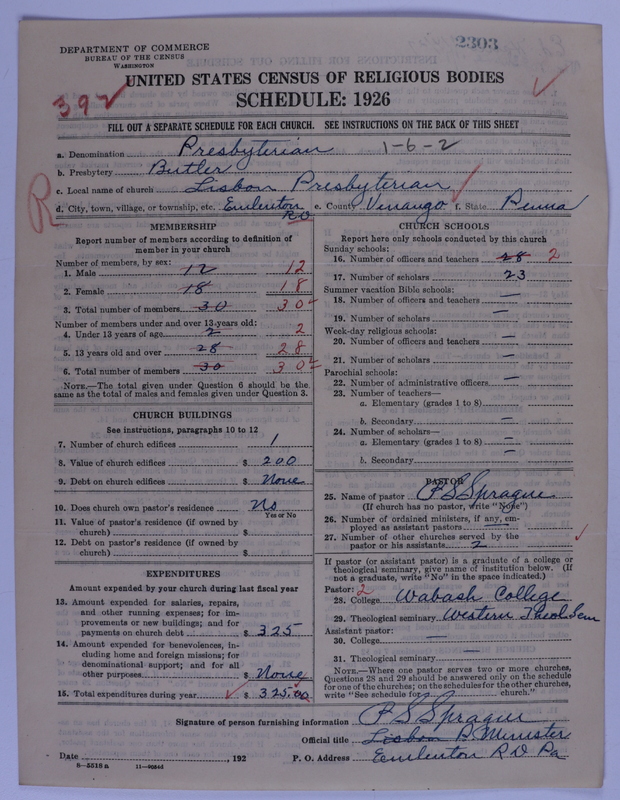 2303
DEPARTMENT OF COMMERCE
BUREAU OF THE CENSUS
WASHINGTON
UNITED STATES CENSUS OF RELIGIOUS BODIES
SCHEDULE: 1926
392
FILL OUT A SEPARATE SCHEDULE FOR EACH CHURCH. SEE INSTRUCTIONS ON THE BACK OF THIS SHEET
a. Denomination Presbyterian 1-6-2
b. Presbytery Butler
c. Local name of church Lisbon Presbyterian
R
d. City, town, village, or township, etc. Emlenton RD e. County Venango f. State Penna
MEMBERSHIP
Report number of members according to definition of member in your church
Number of members, by sex:
1. Male 12 12
2. Female 18 18
3. Total number of members 30 30
Number of members under and over 13 years old:
4. Under 13 years of age 2 2
5. 13 years old and over 28 28
6. Total number of members 30 30
NOTE.—The total given under Question 6 should be the same as the total of males and females given under Question 3.
CHURCH BUILDINGS
See instructions, paragraphs 10 to 12
7. Number of church edifices 1
8. Value of church edifices $ 200
9. Debt on church edifices $ None
10. Does church own pastor's residence No
Yes or No
11. Value of pastor's residence (if owned by church) $
12. Debt on pastor's residence (if owned by church) $
EXPENDITURES
Amount expended by your church during last fiscal year
13. Amount expended for salaries, repairs, and other running expenses; for improvements or new buildings; and for payments on church debt $ 325
14. Amount expended for benevolences, including home and foreign missions; for denominational support; and for all other purposes $ None
15. Total expenditures during year $ 325.00
CHURCH SCHOOLS
Report here only schools conducted by this church
Sunday schools:
16. Number of officers and teachers 28 2
17. Number of scholars 23
Summer vacation Bible schools:
18. Number of officers and teachers —
19. Number of scholars —
Week-day religious schools:
20. Number of officers and teachers —
21. Number of scholars —
Parochial schools:
22. Number of administrative officers —
23. Number of teachers—
a. Elementary (grades 1 to 8)
b. Secondary —
24. Number of scholars—
a. Elementary (grades 1 to 8) —
b. Secondary —
PASTOR
25. Name of pastor P S Sprague
(If church has no pastor, write "None")
26. Number of ordained ministers, if any, employed as assistant pastors —
27. Number of other churches served by the pastor or his assistants 2
If pastor (or assistant pastor) is a graduate of a college or theological seminary, give name of institution below. (If not a graduate, write "No" in the space indicated.)
Pastor: 2
28. College Wabash College
29. Theological seminary Western Theol Sem
Assistant pastor:
30. College —
31. Theological seminary —
NOTE.—Where one pastor serves two or more churches, Questions 28 and 29 should be answered only on the schedule for one of the churches; on the schedules for the other churches, write "See schedule for church."
Signature of person furnishing information P S Sprague
Official title Lisbon P. Minister
Date , 192 P. O. Address Emlenton R D Pa
8—5518 a